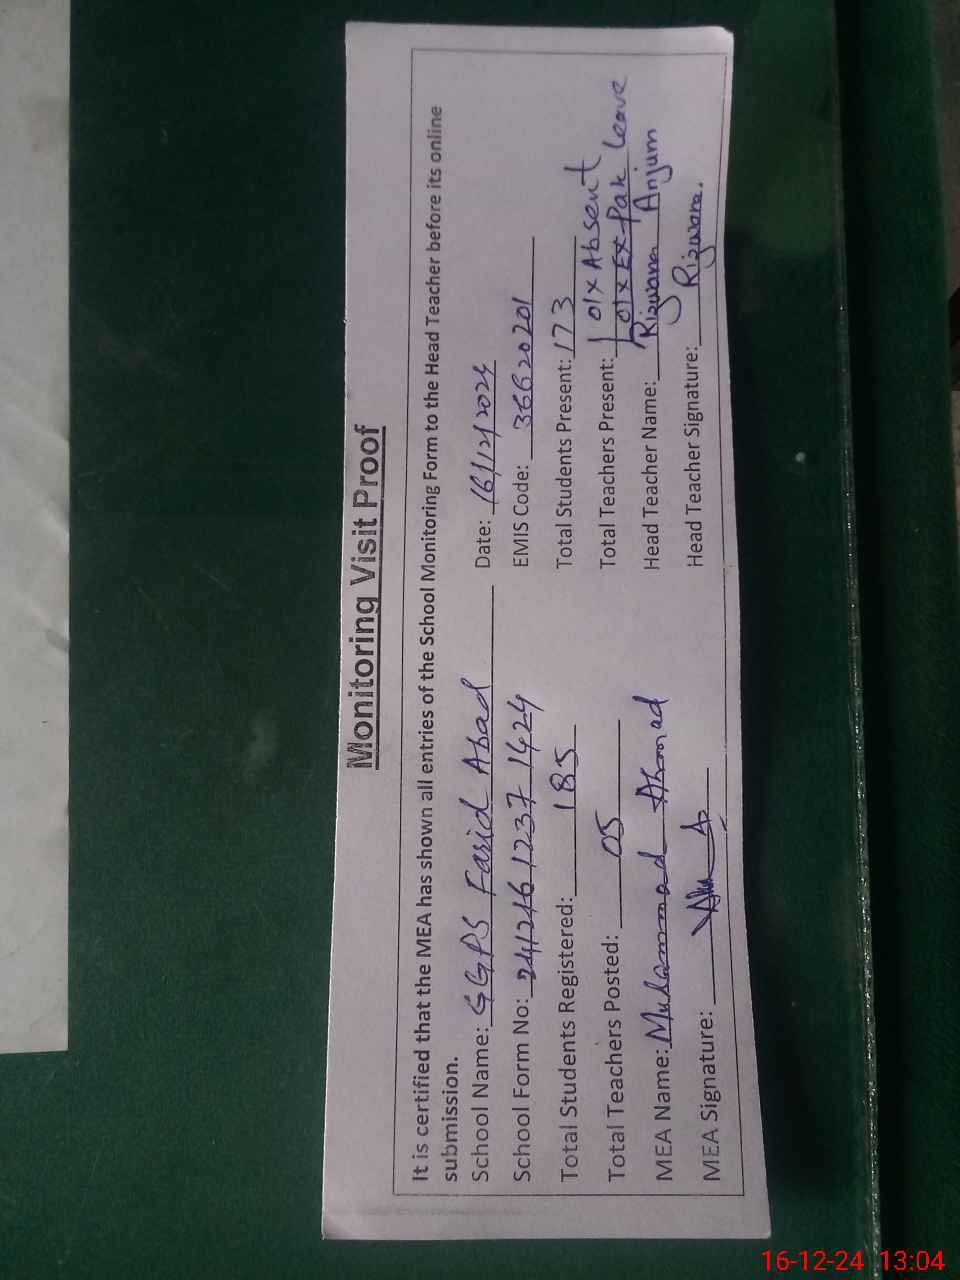 Monitoring Visit Proof
It is certified that the MEA has shown all entries of the School Monitoring Form to the Head Teacher before its online
submission.
School Name: GGPS Farid Abad Date: 16/12/2024
School Form No: 242161237 1424 EMIS Code: 36620201
Total Students Registered: 185 Total Students Present: 173
Total Teachers Posted: 05 Total Teachers Present: 01x Absent
01x Ex-Pak leave
MEA Name: Muhammad Ahmad Head Teacher Name: Rizwana Anjum
MEA Signature: Head Teacher Signature: Rizwana.
16-12-24 13:04